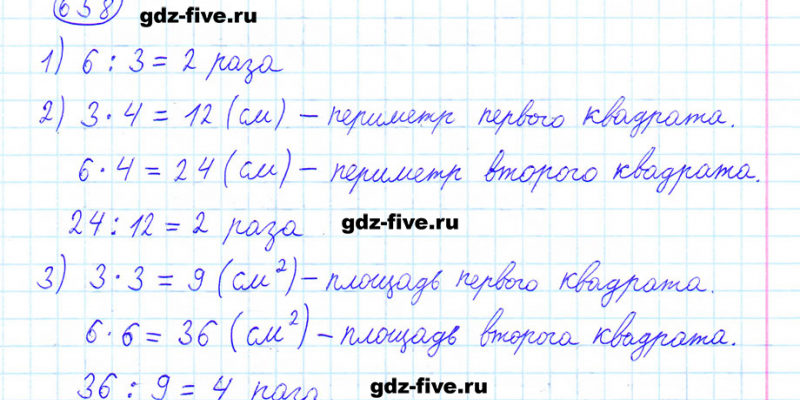 658 gdz-five.ru
1) 6 : 3 = 2 раза
2) 3 · 4 = 12 (см) – периметр первого квадрата.
6 · 4 = 24 (см) – периметр второго квадрата.
24 : 12 = 2 раза gdz-five.ru
3) 3 · 3 = 9 (см²) – площадь первого квадрата.
6 · 6 = 36 (см²) – площадь второга квадрата.
36 : 9 = 4 раза gdz-five.ru